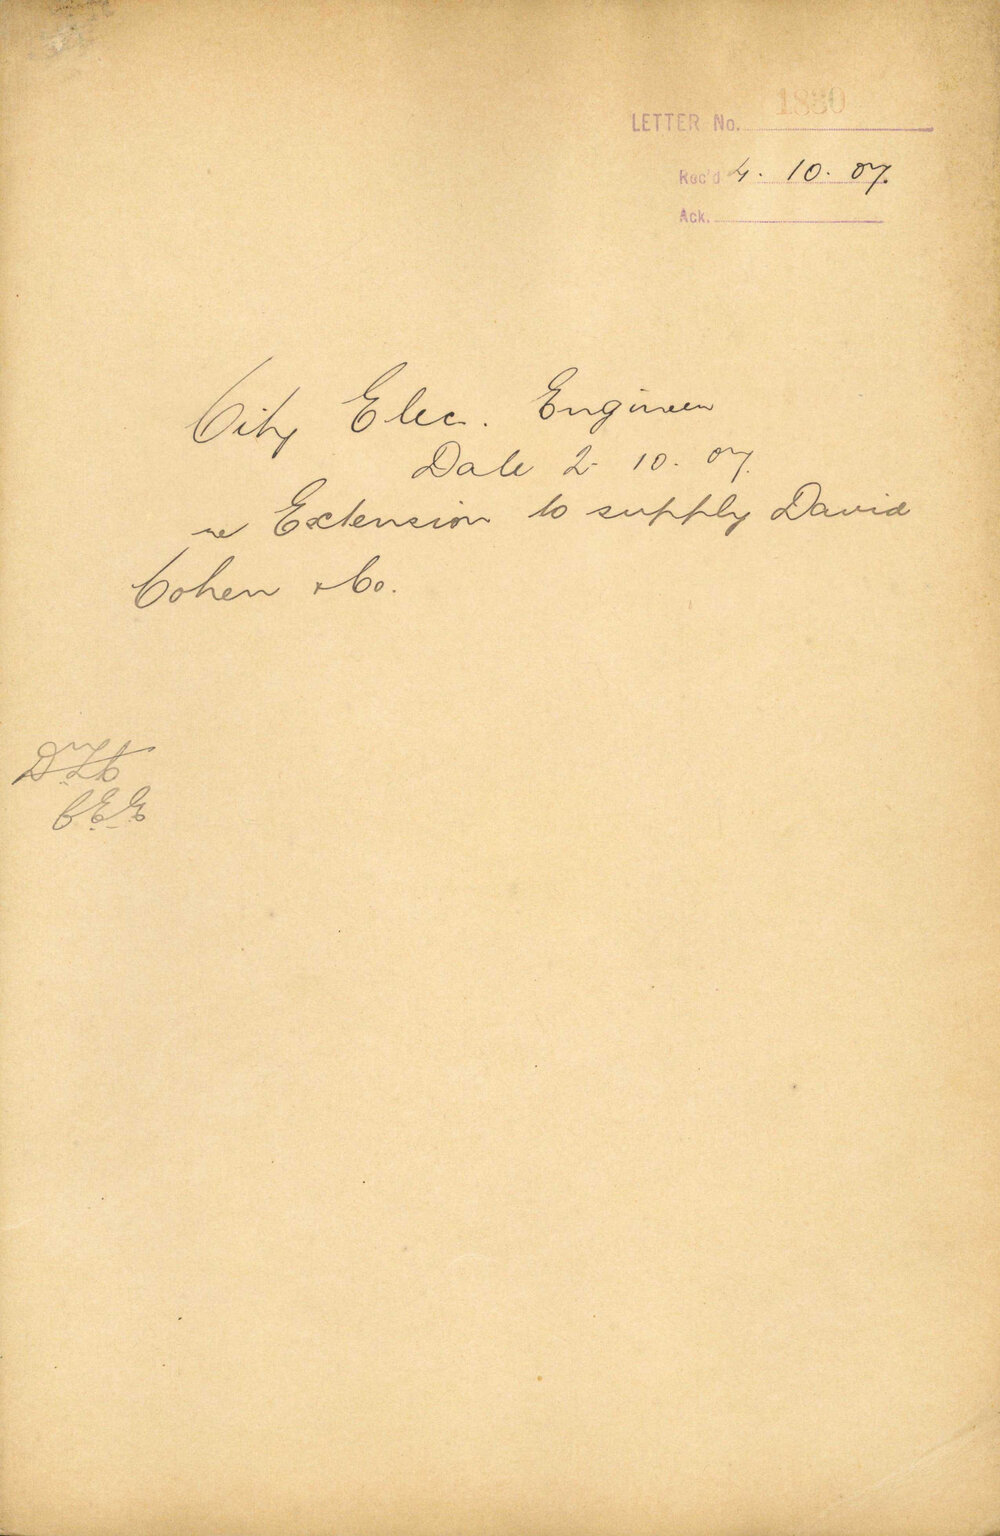 LETTER No. 1880
Rec'd 4. 10. 07.
Ack.
City Elec. Engineer
Date 2. 10. 07.
re Extension to supply David
Cohen & Co.
C.E.E